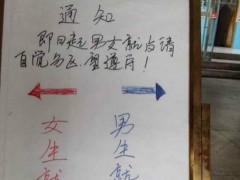 通知
即日起男女就歺请
自觉分区.望遵守!
女生就
男生就